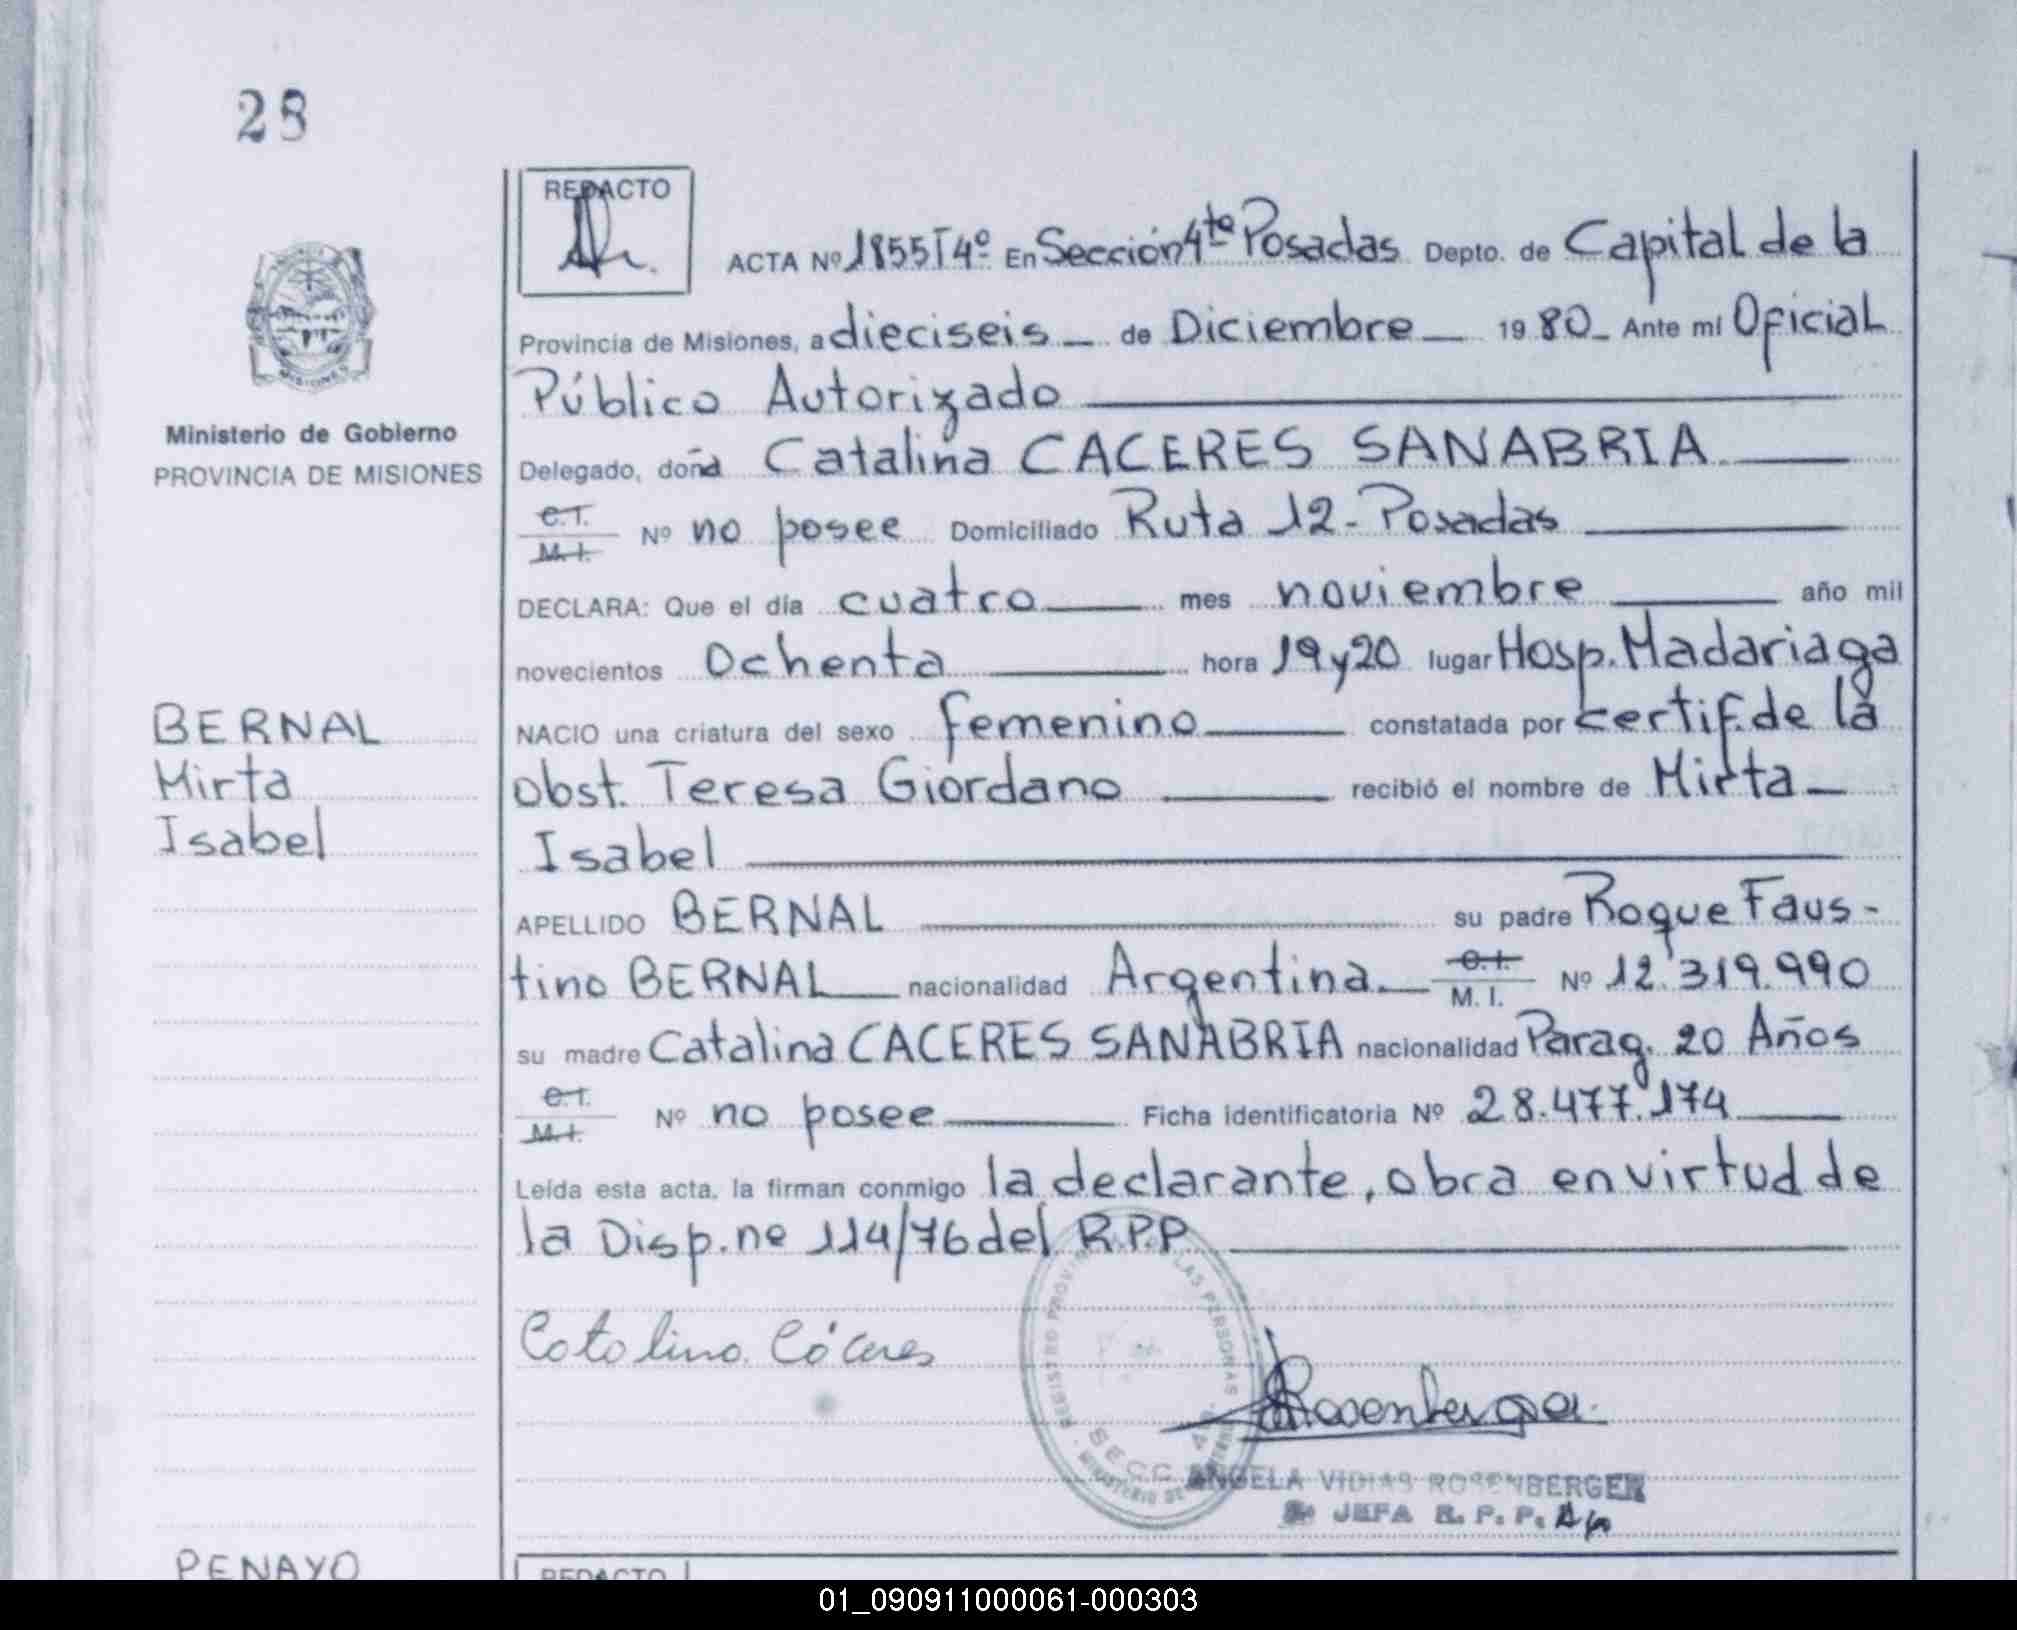 28
REDACTO
ACTA Nº 1855 T 4º En Sección 4ta Posadas Depto. de Capital de la
Provincia de Misiones, a dieciseis de Diciembre 19 80 Ante mí Oficial
Público Autorizado
Delegado, doña Catalina CACERES SANABRIA
C.I.
M.I. Nº no posee Domiciliado Ruta 12 - Posadas
DECLARA: Que el día cuatro mes noviembre año mil
novecientos Ochenta hora 19 y 20 lugar Hosp. Madariaga
NACIO una criatura del sexo femenino constatada por certif. de la
obst. Teresa Giordano recibió el nombre de Mirta
Isabel
APELLIDO BERNAL su padre Roque Faus-
tino BERNAL nacionalidad Argentina C.I.
M. I. Nº 12.319.990
su madre Catalina CACERES SANABRIA nacionalidad Parag. 20 Años
C.I.
M.I. Nº no posee Ficha identificatoria Nº 28.477.174
Leída esta acta, la firman conmigo la declarante, obra en virtud de
la Disp. nº 114/76 del R.P.P
Catalina Cáceres
REGISTRO PROVINCIAL DE LAS PERSONAS
SECC. 4a.
MINISTERIO DE GOBIERNO
Rosenberger
ANGELA VIDIAS ROSENBERGER
JEFA R. P. P.
MISIONES
Ministerio de Gobierno
PROVINCIA DE MISIONES
BERNAL
Mirta
Isabel
PENAYO
REDACTO
01_090911000061-000303